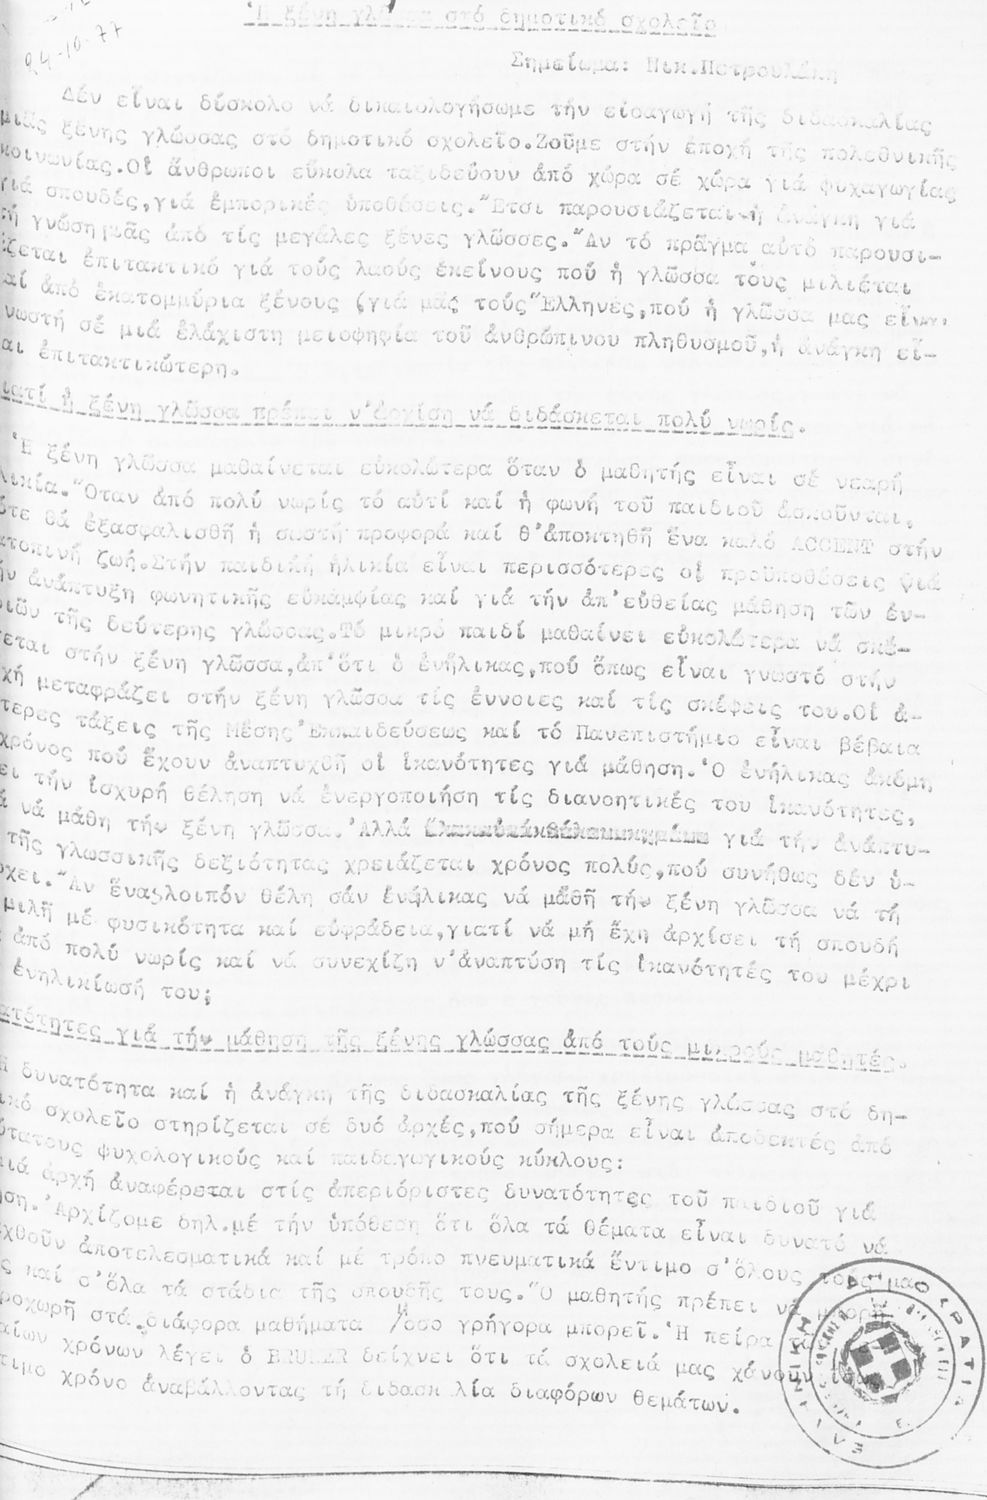 24-10-77
Ἡ ξένη γλῶσσα στό δημοτικό σχολεῖο
Σημείωμα: Νικ.Πετρουλάκη
Δέν εἶναι δύσκολο νά δικαιολογήσωμε τήν εἰσαγωγή τῆς διδασκαλίας
μιᾶς ξένης γλώσσας στό δημοτικό σχολεῖο.Ζοῦμε στήν ἐποχή τῆς πολεθνικῆς
κοινωνίας.Οἱ ἄνθρωποι εὔκολα ταξιδεύουν ἀπό χώρα σέ χώρα γιά ψυχαγωγίας
γιά σπουδές,γιά ἐμπορικές ὑποθέσεις.Ἔτσι παρουσιάζεται ἡ ἀνάγκη γιά
τή γνώση μιᾶς ἀπό τίς μεγάλες ξένες γλῶσσες.Ἄν τό πρᾶγμα αὐτό παρουσι-
άζεται ἐπιτακτικό γιά τούς λαούς ἐκείνους πού ἡ γλῶσσα τούς μιλιέται
καί ἀπό ἑκατομμύρια ξένους (γιά μᾶς τούς Ἕλληνες,πού ἡ γλῶσσα μας εἶναι
γνωστή σέ μιά ἐλάχιστη μειοψηφία τοῦ ἀνθρώπινου πληθυσμοῦ,ἡ ἀνάγκη εἶ-
ναι ἐπιτακτικώτερη.
ιατί ἡ ξένη γλῶσσα πρέπει ν'ἀρχίση νά διδάσκεται πολύ νωρίς.
Ἡ ξένη γλῶσσα μαθαίνεται εὐκολώτερα ὅταν ὁ μαθητής εἶναι σέ νεαρή
λικία.Ὅταν ἀπό πολύ νωρίς τό αὐτί καί ἡ φωνή τοῦ παιδιοῦ ἀσκοῦνται,
ότε θά ἐξασφαλισθῆ ἡ σωστή προφορά καί θ'ἀποκτηθῆ ἕνα καλό ACCENT στήν
ατοπινή ζωή.Στήν παιδική ἡλικία εἶναι περισσότερες οἱ προϋποθέσεις γιά
ήν ἀνάπτυξη φωνητικῆς εὐκαμψίας καί γιά τήν ἀπ'εὐθείας μάθηση τῶν ἐν-
οιῶν τῆς δεύτερης γλώσσας.Τό μικρό παιδί μαθαίνει εὐκολώτερα νά σκέ-
τεται στήν ξένη γλῶσσα,ἀπ'ὅτι ὁ ἐνήλικας,πού ὅπως εἶναι γνωστό στήν
χή μεταφράζει στήν ξένη γλῶσσα τίς ἔννοιες καί τίς σκέψεις του.Οἱ ἀ-
τερες τάξεις τῆς Μέσης Ἐκπαιδεύσεως καί τό Πανεπιστήμιο εἶναι βέβαια
χρόνος πού ἔχουν ἀναπτυχθῆ οἱ ἱκανότητες γιά μάθηση.Ὁ ἐνήλικας ἀκόμη
ει τήν ἰσχυρή θέληση νά ἐνεργοποιήση τίς διανοητικές του ἱκανότητες,
ά νά μάθη τήν ξένη γλῶσσα.Ἀλλά γιά τήν ἀνάπτυ-
τῆς γλωσσικῆς δεξιότητας χρειάζεται χρόνος πολύς,πού συνήθως δέν ὑ-
ρχει.Ἄν ἕνας λοιπόν θέλη σάν ἐνήλικας νά μάθη τήν ξένη γλῶσσα νά τή
μιλῆ μέ φυσικότητα καί εὐφράδεια,γιατί νά μή ἔχη ἀρχίσει τή σπουδή
ἀπό πολύ νωρίς καί νά συνεχίζη ν'ἀναπτύση τίς ἱκανότητές του μέχρι
ἐνηλικίωσή του;
ατότητες γιά τήν μάθηση τῆς ξένης γλώσσας ἀπό τούς μικρούς μαθητές.
Ἡ δυνατότητα καί ἡ ἀνάγκη τῆς διδασκαλίας τῆς ξένης γλώσσας στό δη-
ικό σχολεῖο στηρίζεται σέ δυό ἀρχές,πού σήμερα εἶναι ἀποδεκτές ἀπό
ύτατους ψυχολογικούς καί παιδαγωγικούς κύκλους:
μιά ἀρχή ἀναφέρεται στίς ἀπεριόριστες δυνατότητες τοῦ παιδιοῦ γιά
ση.Ἀρχίζομε δηλ.μέ τήν ὑπόθεση ὅτι ὅλα τά θέματα εἶναι δυνατό νά
χθοῦν ἀποτελεσματικά καί μέ τρόπο πνευματικά ἔντιμο σ'ὅλους τούς μαθ
ς καί σ'ὅλα τά στάδια τῆς σπουδῆς τους.Ὁ μαθητής πρέπει νά μπορῆ
ροχωρῆ στά διάφορα μαθήματα ὅσο γρήγορα μπορεῖ.Ἡ πείρα τῶν
αίων χρόνων λέγει ὁ BRUNER δείχνει ὅτι τά σχολειά μας χάνουν
τιμο χρόνο ἀναβάλλοντας τή διδασκ λία διαφόρων θεμάτων.
ΕΛΛΗΝΙΚΗ ΔΗΜΟΚΡΑΤΙΑ